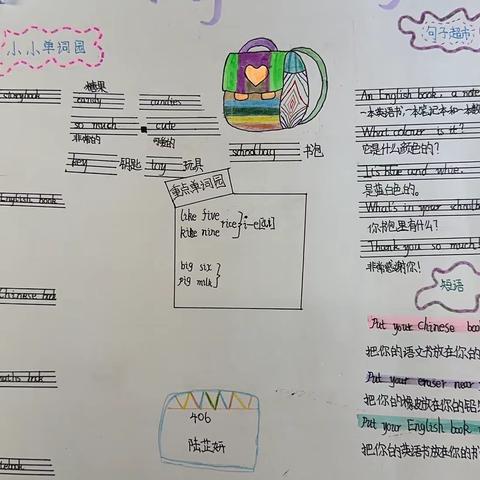 小小单词园
storybook
糖果
candy
candies
so much
非常的
cute
可爱的
key 钥匙
toy 玩具
schoolbag 书包
重点单词园
like five
kite nine
rice
i-e[aɪ]
big six
pig milk
English book
Chinese book
maths book
406
陆芷妍
句子超市
An English book, a note
一本英语书,一本笔记本和一本数
What colour is it?
它是什么颜色的?
It's blue and white.
是蓝白色的。
What's in your schoolba
你书包里有什么?
Thank you so much!
非常感谢你!
短语
Put your Chinese book
把你的语文书放在你的
Put your eraser near y
把你的橡皮放在你的铅
Put your English book
把你的英语书放在你的书